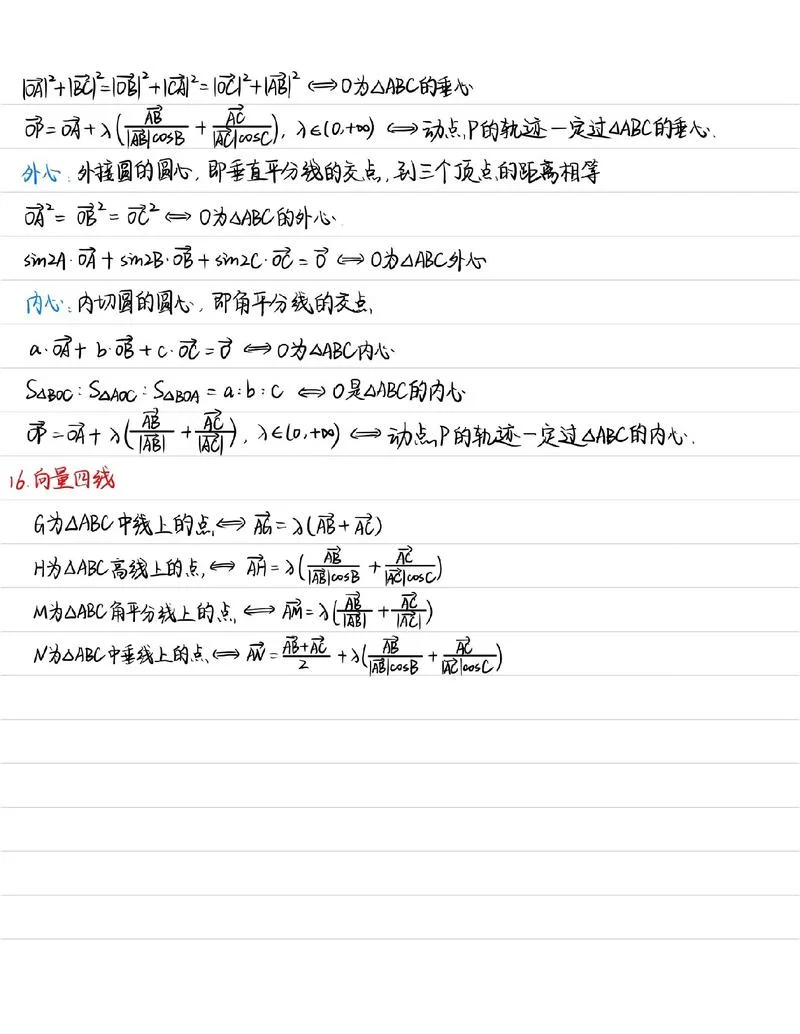 |OA⃗|²+|BC⃗|²=|OB⃗|²+|CA⃗|²=|OC⃗|²+|AB⃗|² ⟺ O为△ABC的垂心
OP⃗=OA⃗+λ(AB⃗/(|AB⃗|cosB) + AC⃗/(|AC⃗|cosC)), λ∈(0,+∞) ⟺ 动点P的轨迹一定过△ABC的垂心.
外心: 外接圆的圆心, 即垂直平分线的交点, 到三个顶点的距离相等
OA⃗²=OB⃗²=OC⃗² ⟺ O为△ABC的外心.
sin2A·OA⃗+sin2B·OB⃗+sin2C·OC⃗=0⃗ ⟺ O为△ABC外心
内心: 内切圆的圆心, 即角平分线的交点.
a·OA⃗+b·OB⃗+c·OC⃗=0⃗ ⟺ O为△ABC内心
S△BOC:S△AOC:S△BOA=a:b:c ⟺ O是△ABC的内心
OP⃗=OA⃗+λ(AB⃗/|AB⃗| + AC⃗/|AC⃗|), λ∈(0,+∞) ⟺ 动点P的轨迹一定过△ABC的内心.
16.向量四线
G为△ABC中线上的点 ⟺ AG⃗=λ(AB⃗+AC⃗)
H为△ABC高线上的点 ⟺ AH⃗=λ(AB⃗/(|AB⃗|cosB) + AC⃗/(|AC⃗|cosC))
M为△ABC角平分线上的点 ⟺ AM⃗=λ(AB⃗/|AB⃗| + AC⃗/|AC⃗|)
N为△ABC中垂线上的点 ⟺ AN⃗=(AB⃗+AC⃗)/2 + λ(AB⃗/(|AB⃗|cosB) + AC⃗/(|AC⃗|cosC))